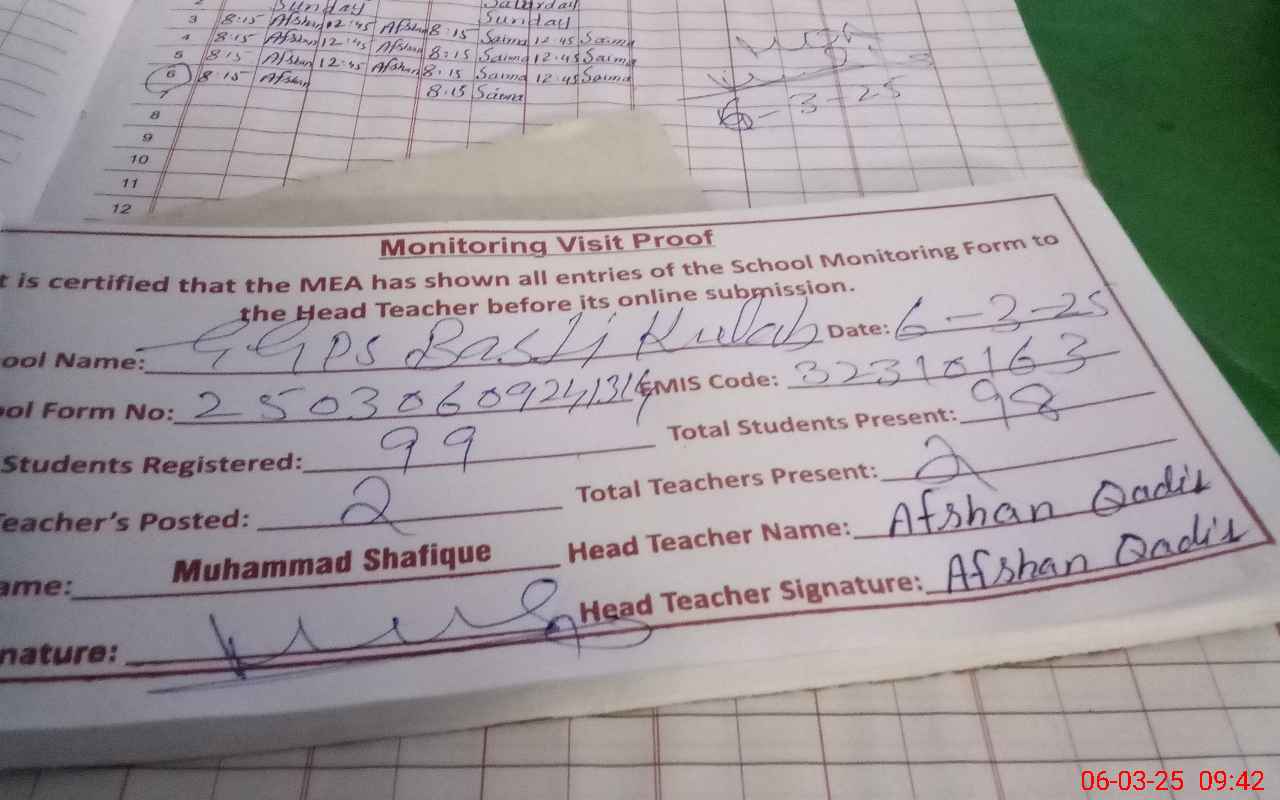 Sunday Saturday
3 8:15 Afshan 12:45 Afshan 8:15 Sunday
4 8:15 Afshan 12:45 Afshan 8:15 Saima 12:45 Saima
5 8:15 Afshan 12:45 Afshan 8:15 Saima 12:45 Saima
6 8:15 Afshan 8:15 Saima 12:45 Saima
7 8:15 Saima
6-3-25
8
9
10
11
12
Monitoring Visit Proof
t is certified that the MEA has shown all entries of the School Monitoring Form to
the Head Teacher before its online submission.
ool Name: GGPS Basti Kulab Date: 6-3-25
ool Form No: 25030609241314 EMIS Code: 32310163
Students Registered: 99 Total Students Present: 98
Teacher's Posted: 2 Total Teachers Present: 2
ame: Muhammad Shafique Head Teacher Name: Afshan Qadir
nature: Head Teacher Signature: Afshan Qadir
06-03-25 09:42